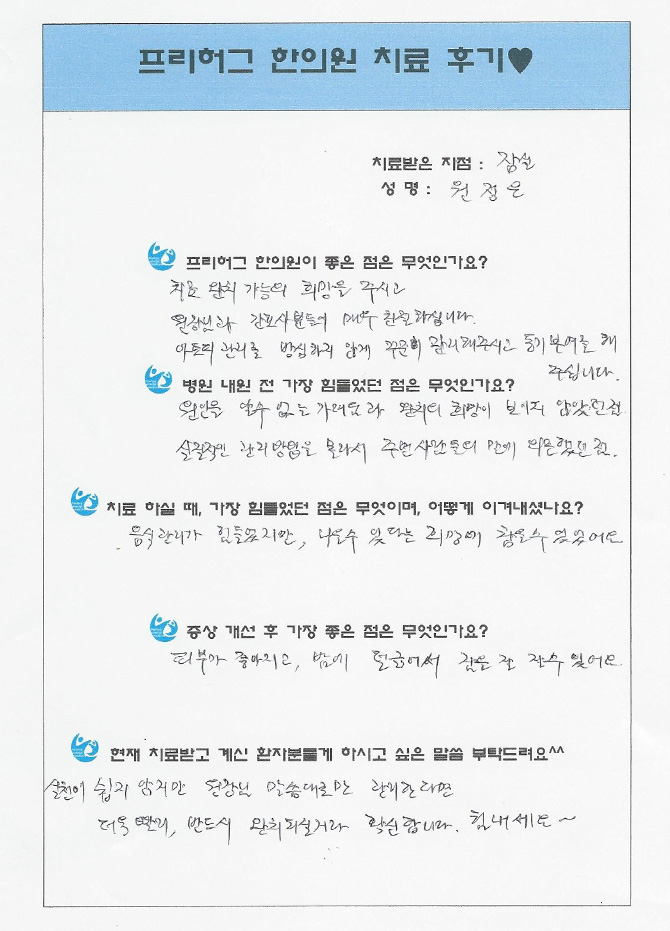 프리허그 한의원 치료 후기♥
치료받은 지점 : 잠실
성 명 : 원정은
프리허그 한의원이 좋은 점은 무엇인가요?
치료 완치 가능의 희망을 주시고
원장님과 간호사분들이 매우 친절하십니다.
아토피 관리를 방심하지 않게 꾸준히 관리해주시고 동기부여를 해
주십니다.
병원 내원 전 가장 힘들었던 점은 무엇인가요?
원인을 알수 없는 가려움과 완치의 희망이 보이지 않았던점
실질적인 관리방법을 몰라서 주변사람들의 말에 의존했던 점.
치료 하실 때, 가장 힘들었던 점은 무엇이며, 어떻게 이겨내셨나요?
음식관리가 힘들었지만, 나을수 있다는 희망에 참을수 있었어요
증상 개선 후 가장 좋은 점은 무엇인가요?
피부가 좋아지고, 밤에 잠을 잘 잘수 있어요
현재 치료받고 계신 환자분들께 하시고 싶은 말씀 부탁드려요^^
실천이 쉽지 않지만 원장님 말씀대로만 관리한다면
더욱 빨리, 반드시 완치되실거라 확신합니다. 힘내세요~